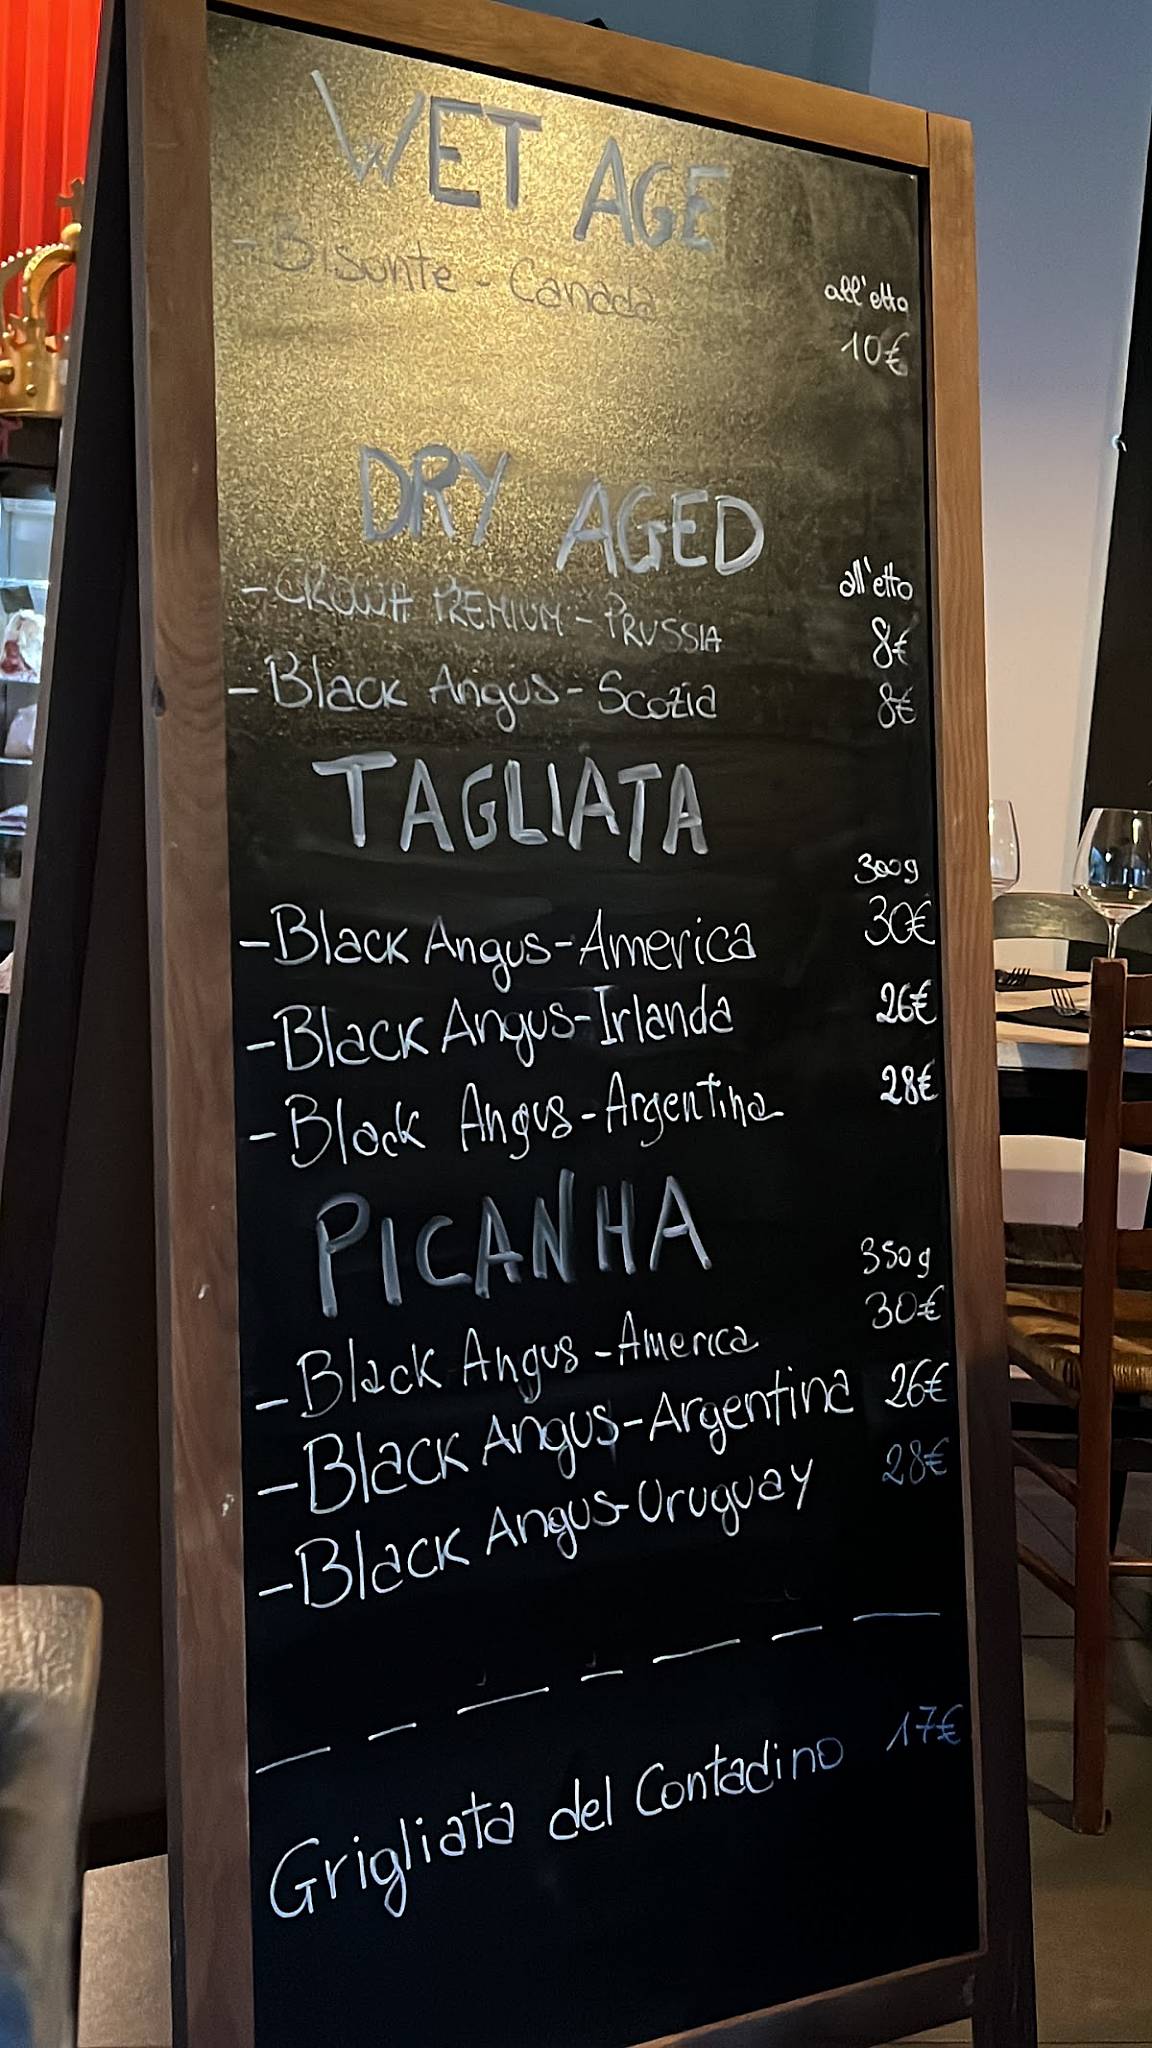 WET AGE
- Bisonte - Canada
all'etto
10€
DRY AGED
all'etto
- CROWN PREMIUM - PRUSSIA 8€
- Black Angus - Scozia 8€
TAGLIATA
300g
- Black Angus - America 30€
- Black Angus - Irlanda 26€
- Black Angus - Argentina 28€
PICANHA
350g
- Black Angus - America 30€
- Black Angus - Argentina 26€
- Black Angus - Uruguay 28€
Grigliata del Contadino 17€